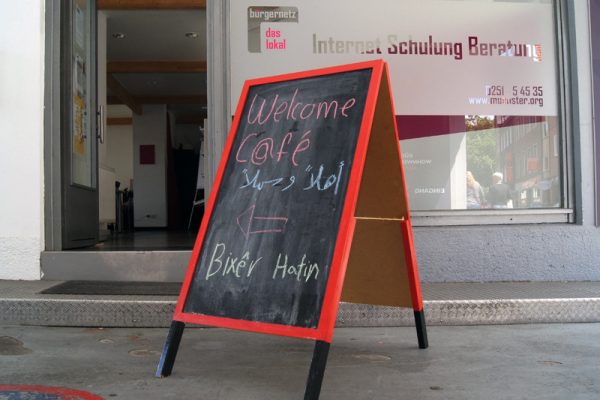 bürgernetz
das
lokal
Internet Schulung Beratung
0251 5 45 35
www.muenster.org
Welcome
C@fé
أهلاً وسهلاً
Bixêr Hatin